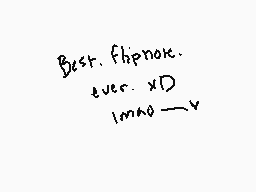 Best. flipnote.
ever. xD
lmao —v